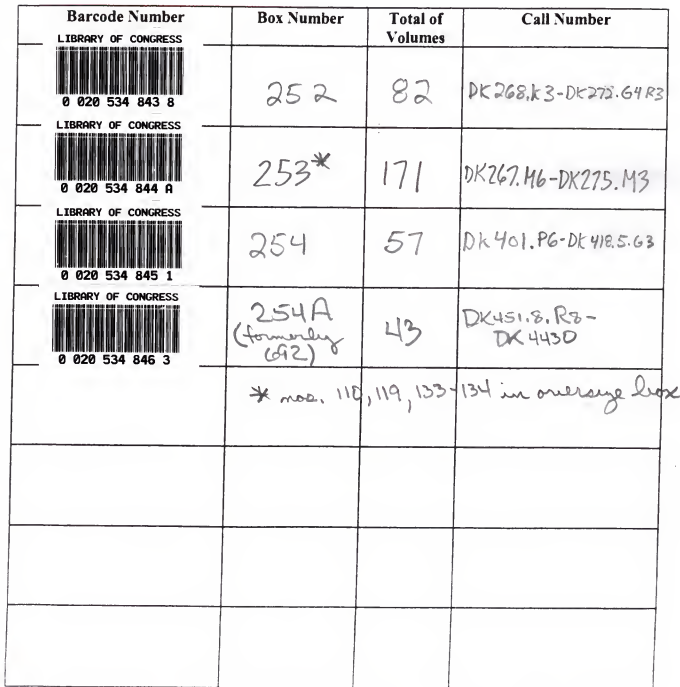 Barcode Number Box Number Total of Volumes Call Number
LIBRARY OF CONGRESS
0 020 534 843 8
252 82 DK268.K3-DK272.G4R3
LIBRARY OF CONGRESS
0 020 534 844 A
253* 171 DK267.M6-DK275.M3
LIBRARY OF CONGRESS
0 020 534 845 1
254 57 DK401.P6-DK418.5.G3
LIBRARY OF CONGRESS
0 020 534 846 3
254A
(formerly
692)
43
DK451.8.R8-
DK4430
* nos. 110, 119, 133-134 in oversize box